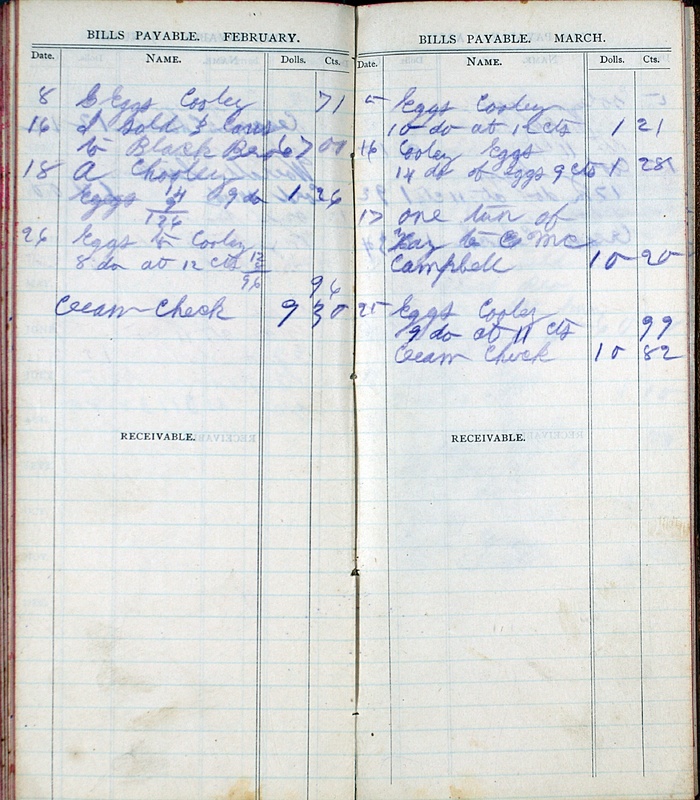 BILLS PAYABLE. FEBRUARY.
Date. NAME. Dolls. Cts.
8 Eggs Cooley 71
16 I sold 3 cows
to Black Bros 67 00
18 A Chooley
eggs 14 9 do 1 26
9
126
26 Eggs to Cooley
8 do at 12 cts 12
8
96
96
Cream Check 9 30
RECEIVABLE.
BILLS PAYABLE. MARCH.
Date. NAME. Dolls. Cts.
5 Eggs Cooley
10 do at 12 cts 1 21
16 Cooley Eggs
14 do of eggs 9 cts 1 28
17 one tun of
Hay to C Mc
Campbell 10 20
25 Eggs Cooley
9 do at 11 cts 99
Cream Check 10 82
RECEIVABLE.